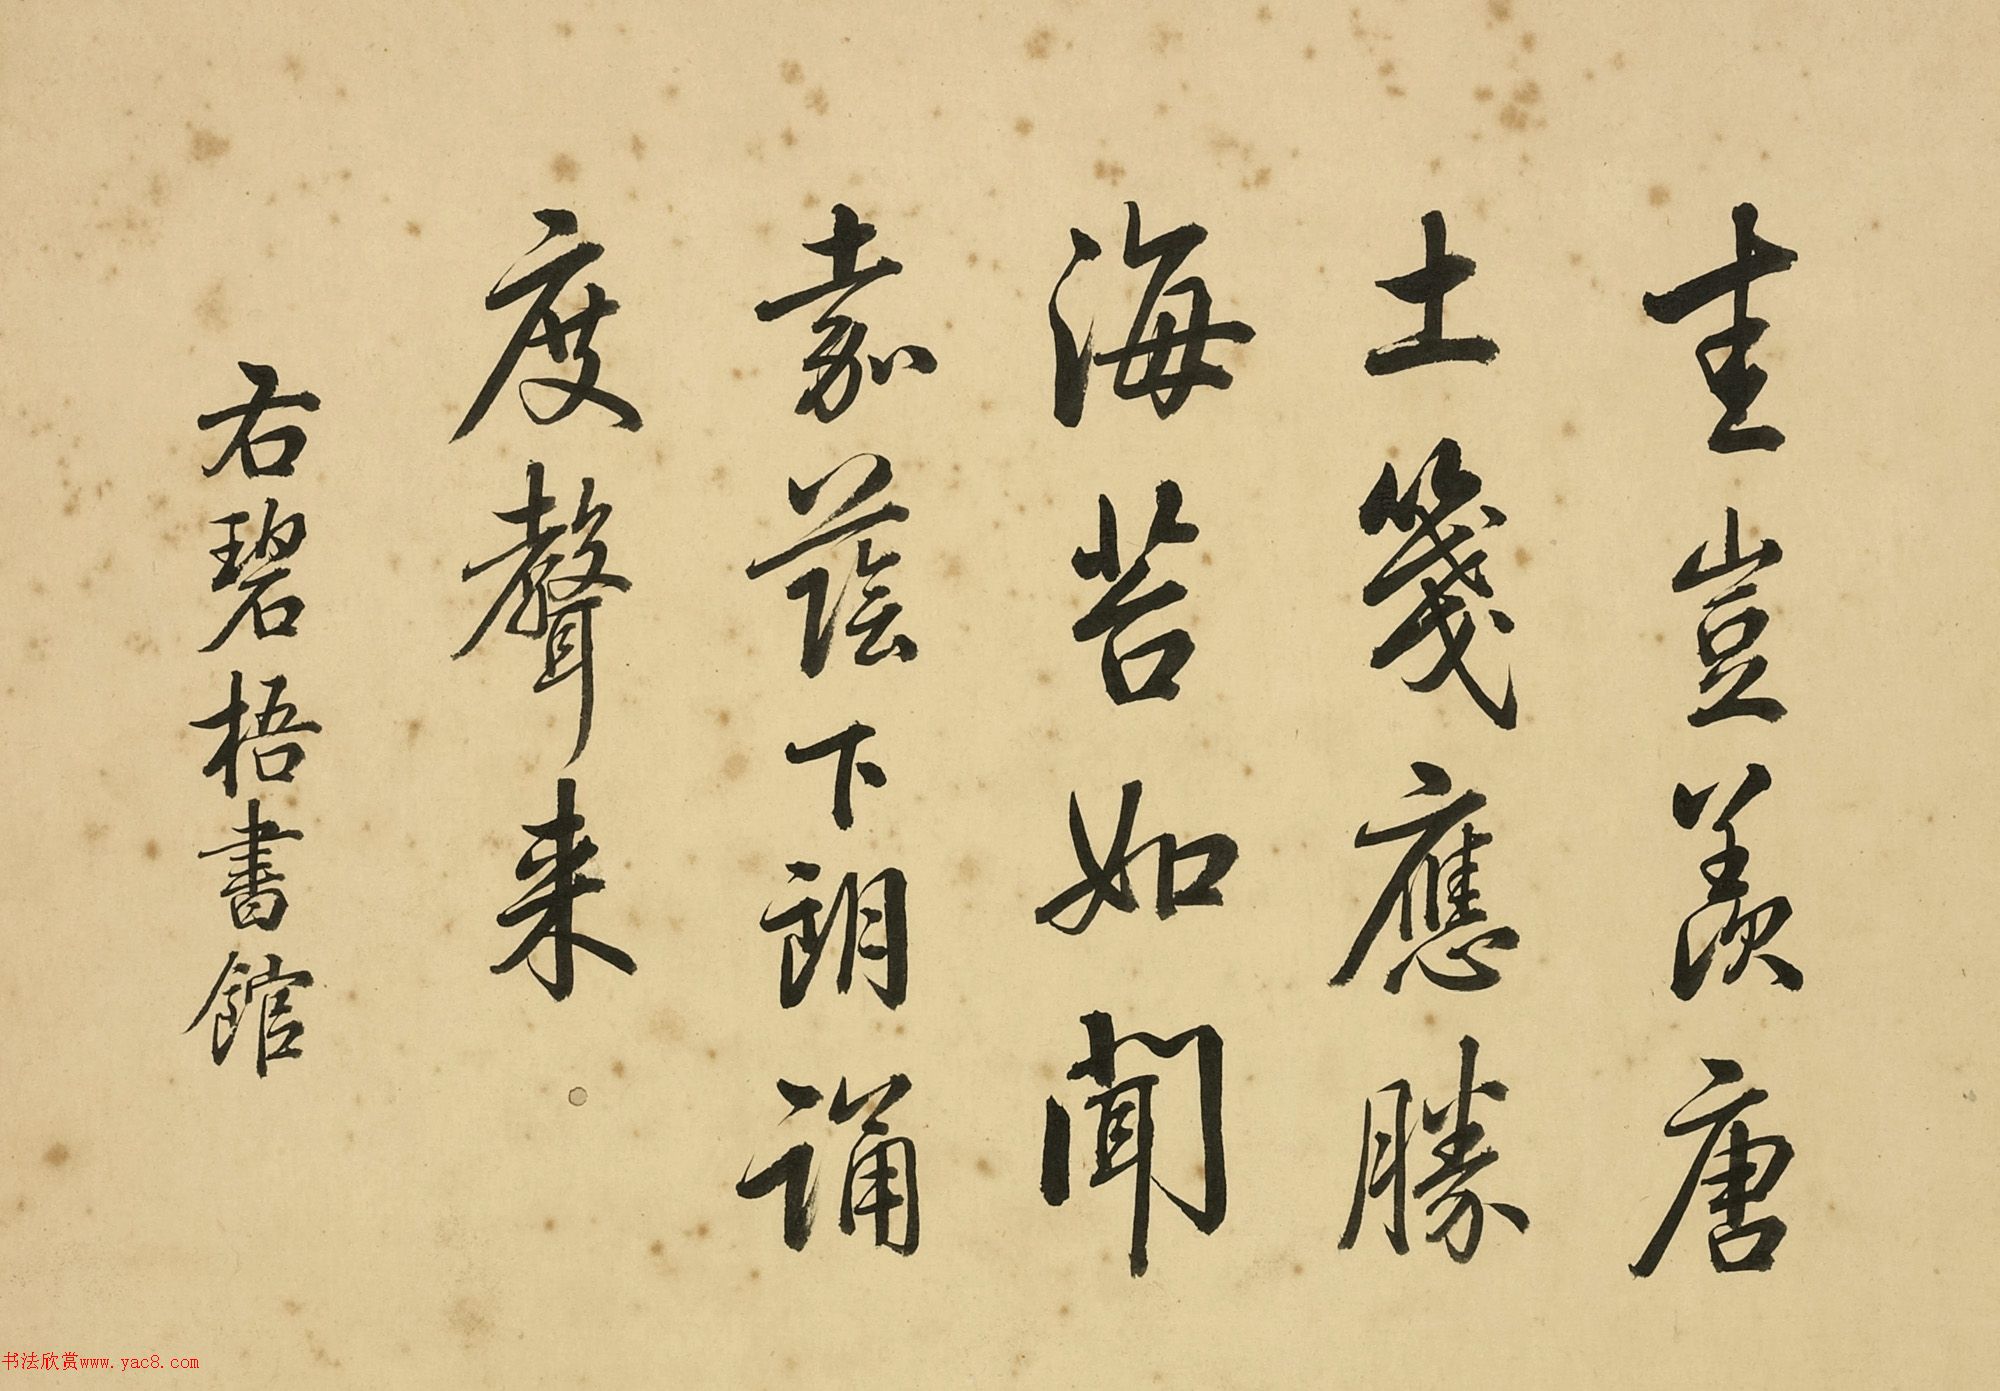 圭豈羨唐
土箋應勝
海苔如聞
嘉蔭下朗誦
度聲来
右碧梧書館
书法欣赏www.yac8.com